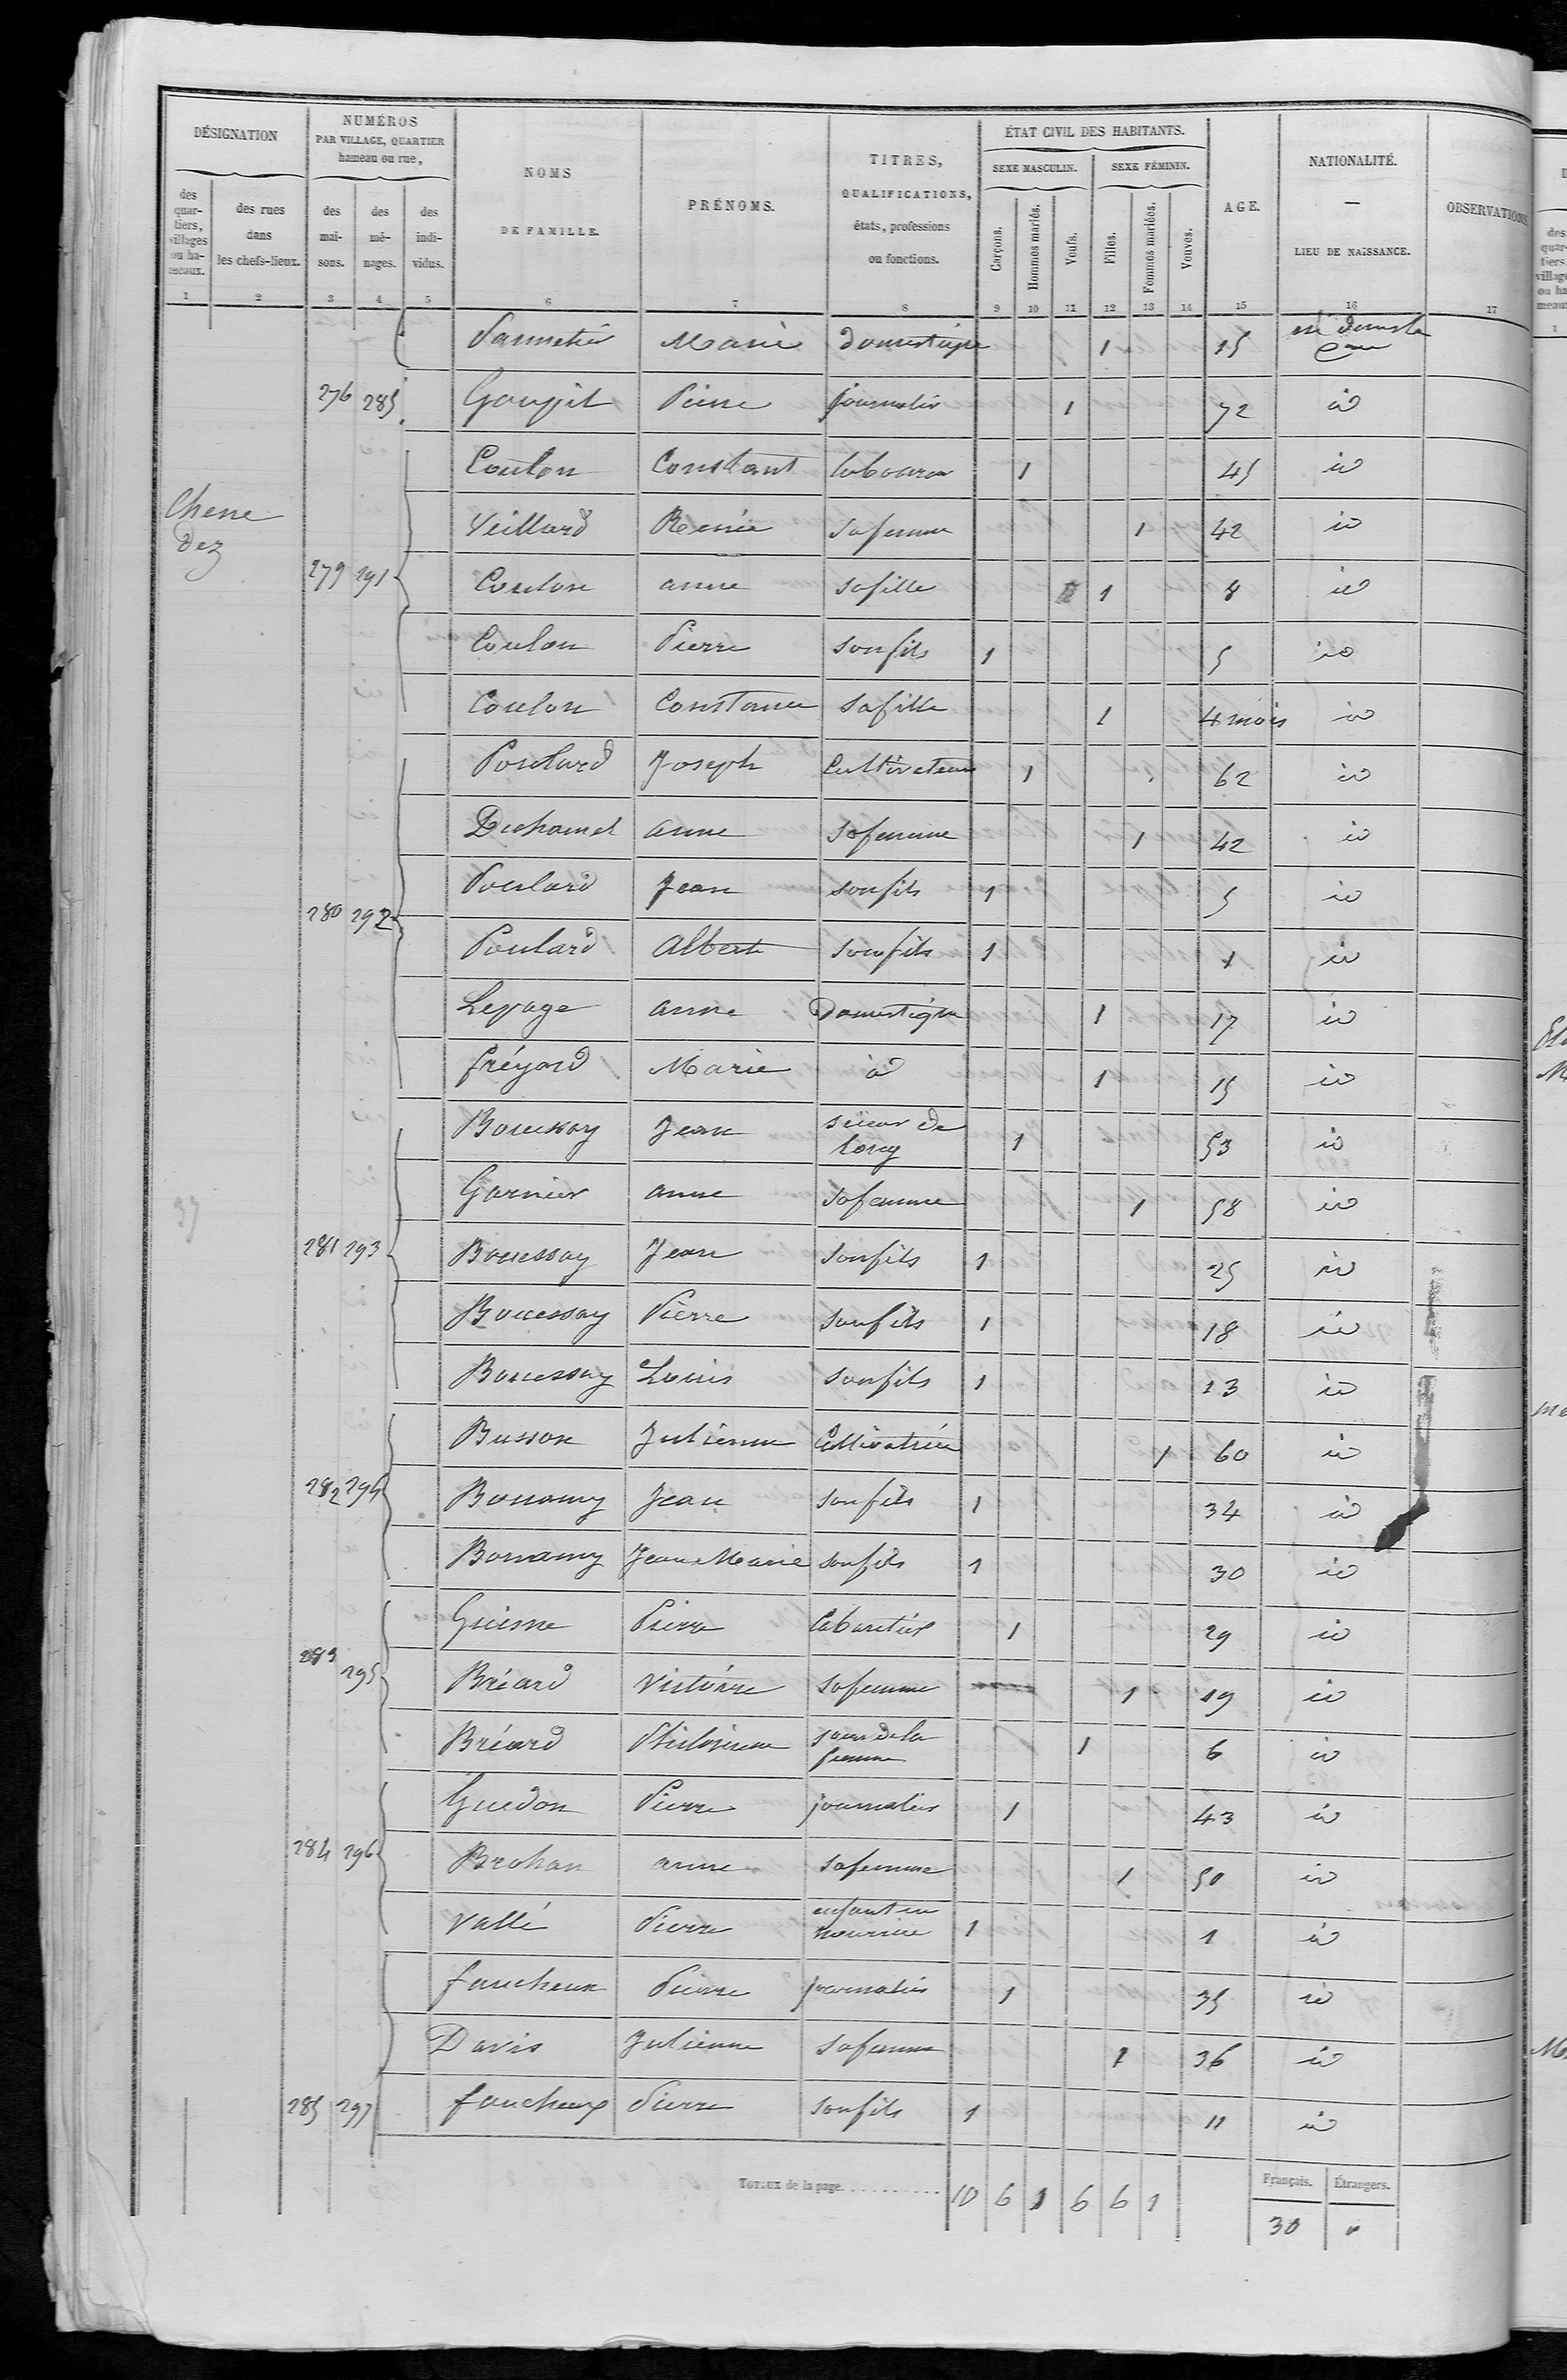 DÉSIGNATION
NUMÉROS
PAR VILLAGE, QUARTIER
hameau ou rue,
NOMS
DE FAMILLE.
PRÉNOMS.
TITRES,
QUALIFICATIONS,
états, professions
ou fonctions.
ÉTAT CIVIL DES HABITANTS.
SEXE MASCULIN. SEXE FÉMININ.
AGE.
NATIONALITÉ.
—
LIEU DE NAISSANCE.
OBSERVATIONS
des quar-tiers, villages ou ha-meaux.
des rues dans les chefs-lieux.
des mai-sons.
des mé-nages.
des indi-vidus.
Garçons. Hommes mariés. Veufs. Filles. Femmes mariées. Veuves.
1 2 3 4 5 6 7 8 9 10 11 12 13 14 15 16 17
Marie domestique 1 15
276 285 Goupil Pierre journalier 1 72 id
Coulon Constant laboureur 1 45 id
Chene
dez
Veillard Renée sa femme 1 42 id
279 291 Coulon anne sa fille 1 8 id
Coulon Pierre son fils 1 5 id
Coulon Constance sa fille 1 4 mois id
Poulard Joseph Cultivateur 1 62 id
Duhamel anne sa femme 1 42 id
Poulard Jean son fils 1 5 id
280 292
Poulard Albert son fils 1 1 id
Lepage anne Domestique 1 17 id
fréyard Marie id 1 15 id
Bouessay Jean scieur de
long 1 53 id
Garnier anne sa femme 1 58 id
281 293 Bouessay Jean son fils 1 25 id
Bouessay Pierre son fils 1 18 id
Bouessay Louis son fils 1 13 id
Busson Julienne Cultivatrice 1 60 id
282 294 Bonamy Jean son fils 1 34 id
Bonamy Jean Marie son fils 1 30 id
Guesne Pierre Cabaretier 1 29 id
283 295 Bréard Victoire sa femme 1 19 id
Bréard soeur de la
femme 1 6 id
Guedon Pierre journalier 1 43 id
284 296 Brohan anne sa femme 1 50 id
Vallé Pierre enfant en
nourrice 1 1 id
faucheux Pierre journalier 1 35 id
Davis Julienne sa femme 1 36 id
285 297 faucheux Pierre son fils 1 11 id
Totaux de la page 10 6 1 6 6 1
Français. Étrangers.
30 "